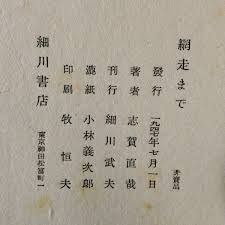 網走まで
非賣品
發行 一九四七年七月一日
著者 志賀直哉
刊行 細川武夫
漉紙 小林義次郎
印刷 牧恒夫
細川書店
東京神田松富町一